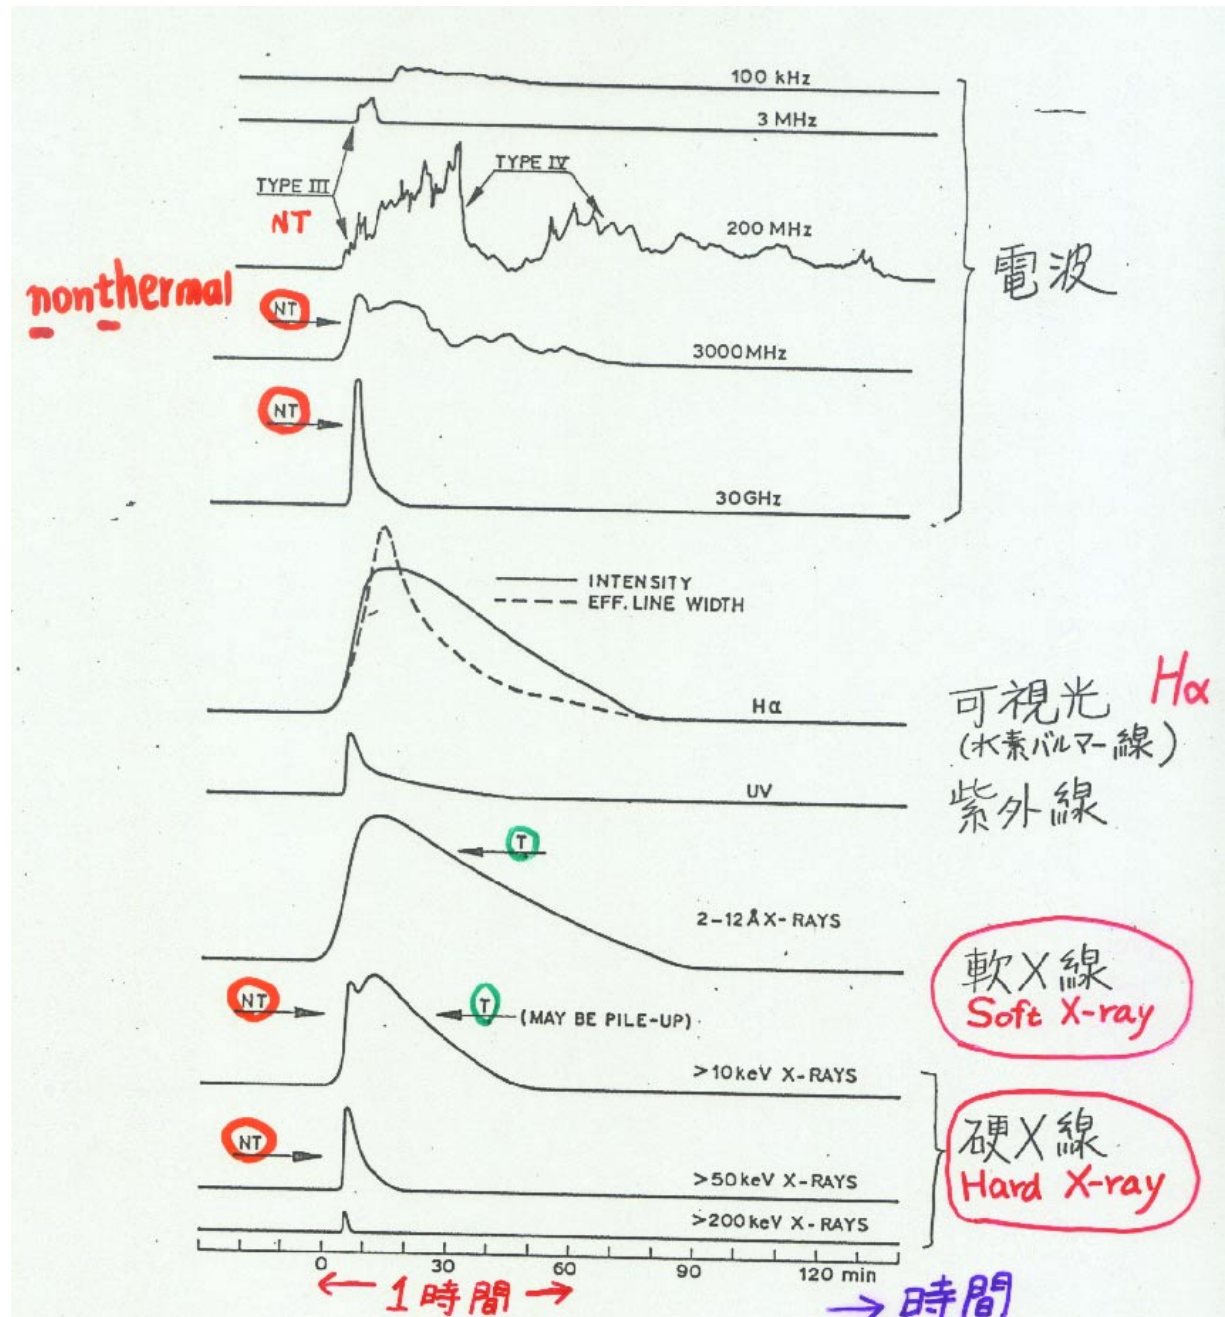 100 kHz
3 MHz
TYPE III
TYPE IV
NT
200 MHz
電波
nonthermal
NT
3000MHz
NT
30GHz
INTENSITY
EFF. LINE WIDTH
Hα
可視光 Hα
(水素バルマー線)
UV
紫外線
T
2-12Å X-RAYS
軟X線
Soft X-ray
NT
T
(MAY BE PILE-UP)
>10keV X-RAYS
硬X線
Hard X-ray
NT
>50keV X-RAYS
>200keV X-RAYS
0 30 60 90 120 min
← 1時間 →
→ 時間